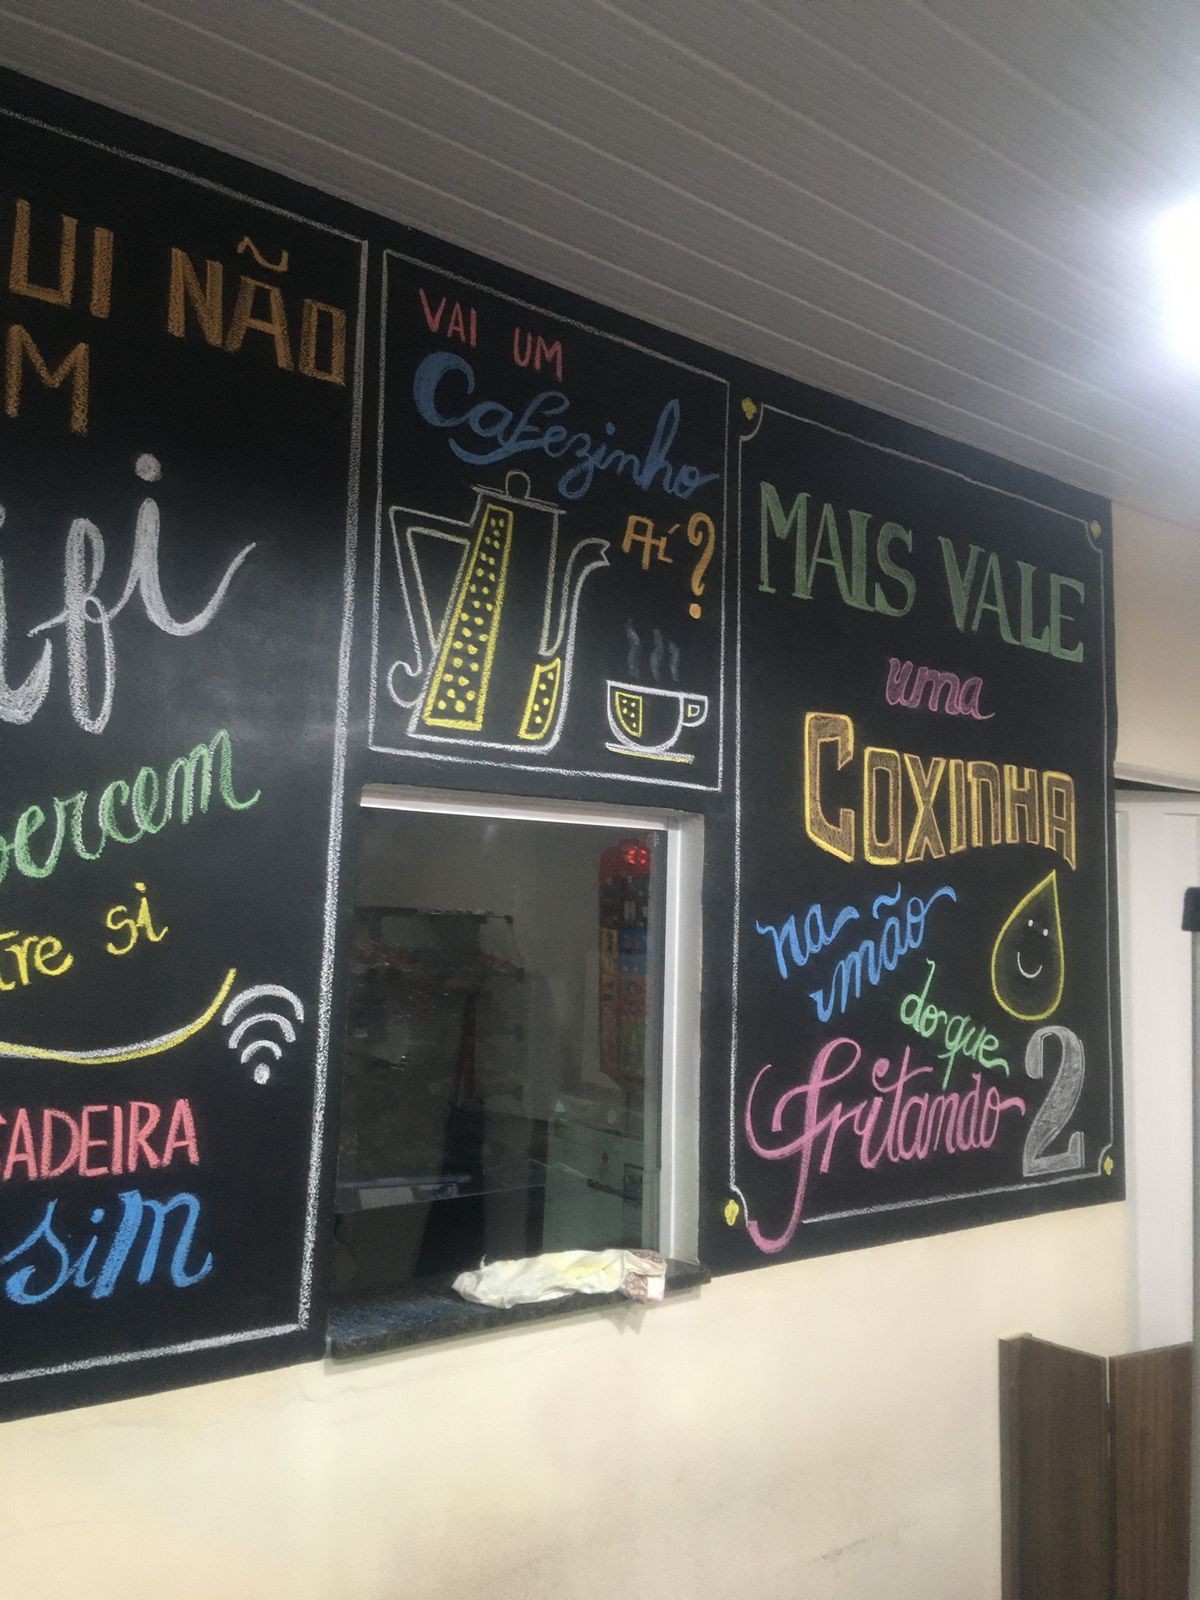 UI NÃO
M
ifi
percem
tre si
CADEIRA
sim
VAI UM
Cafezinho
Aí?
MAIS VALE
uma
COXINHA
na
mão
do que
fritando 2